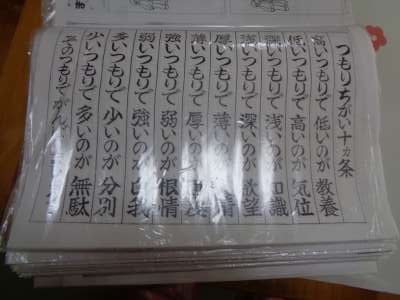 つもりちがい十ヵ条
高いつもりで 低いのが 教養
低いつもりで 高いのが 気位
深いつもりで 浅いのが 知識
浅いつもりで 深いのが 欲望
厚いつもりで 薄いのが 情
薄いつもりで 厚いのが
強いつもりで 弱いのが 根情
弱いつもりで 強いのが 自我
多いつもりで 少いのが 分別
少いつもりで 多いのが 無駄
そのつもりで がん